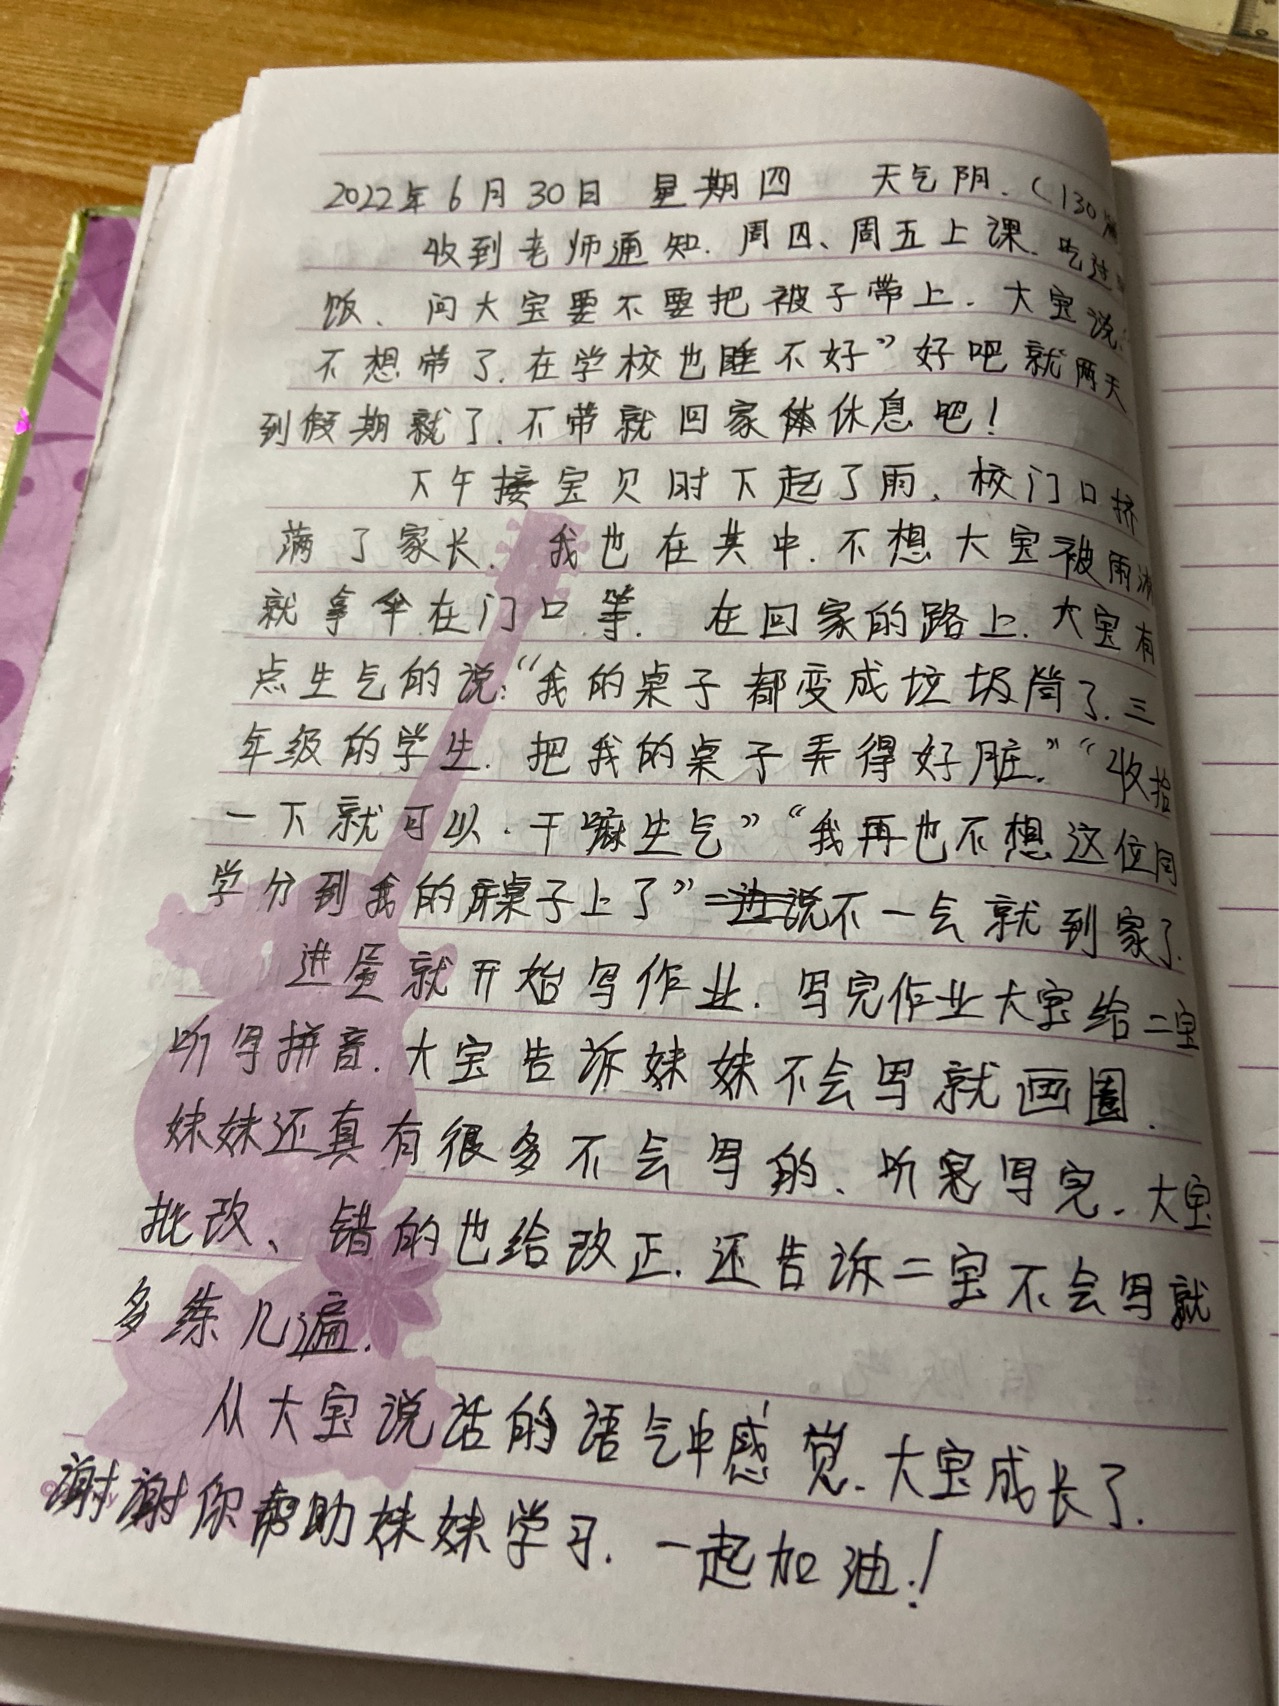 2022年6月30日 星期四 天气阴.（130篇
收到老师通知.周四、周五上课.吃过
饭、问大宝要不要把被子带上.大宝说:
不想带了.在学校也睡不好”好吧就两天
到假期就了.不带就回家休息吧!
下午接宝贝时下起了雨、校门口挤
满了家长.我也在其中.不想大宝被雨淋
就拿伞在门口等.在回家的路上.大宝有
点生气的说:“我的桌子都变成垃圾筒了.三
年级的学生.把我的桌子弄得好脏.”“收拾
一下就可以.干嘛生气”“我再也不想这位同
学分到我的桌子上了”不一会就到家了.
进屋就开始写作业.写完作业大宝给二宝
听写拼音.大宝告诉妹妹不会写就画圈.
妹妹还真有很多不会写的、听写完.大宝
批改、错的也给改正.还告诉二宝不会写就
多练几遍.
从大宝说话的语气中感觉.大宝成长了.
谢谢你帮助妹妹学习.一起加油!